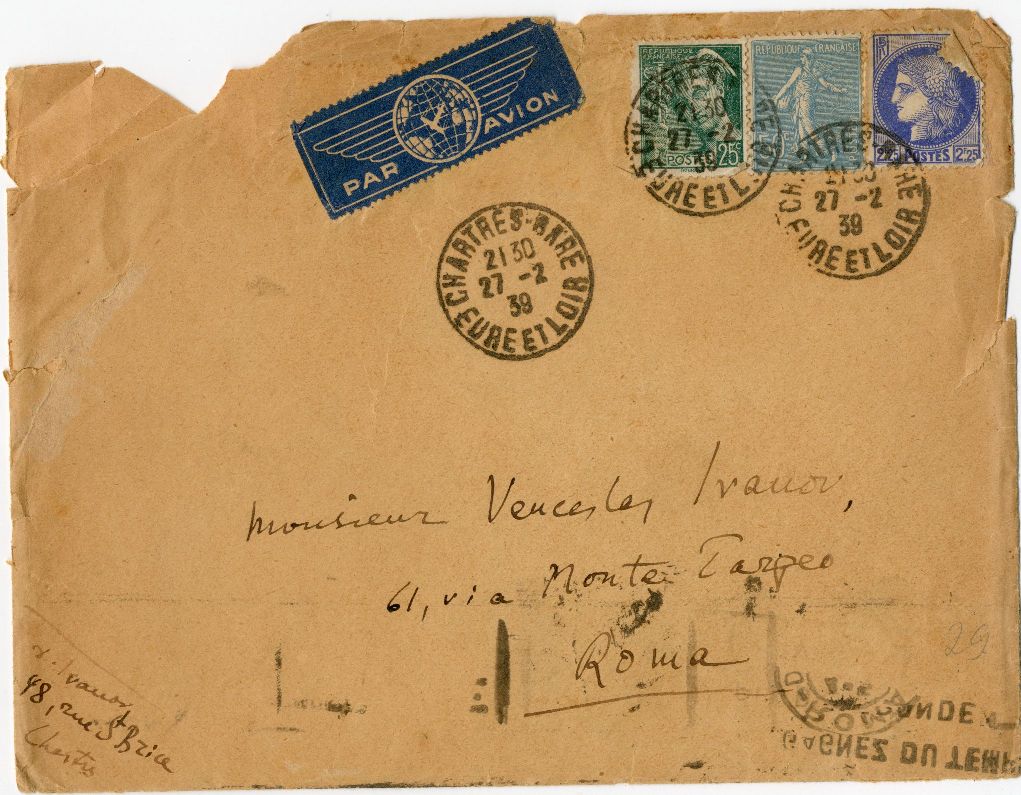 PAR AVION
RÉPUBLIQUE FRANÇAISE
POSTES 25c
RÉPUBLIQUE FRANÇAISE
2F25 POSTES 2F25
CHARTRES-GARE
21 30
27 -2
39
EURE ET LOIR
CHARTRES-GARE
21 30
27 -2
39
EURE ET LOIR
CHARTRES-GARE
21 30
27 -2
39
EURE ET LOIR
Monsieur Venceslas Ivanov,
61, via Monte Tarpeo
Roma
29
Ivanov
48, rue St Brice
GAGNEZ DU TEM